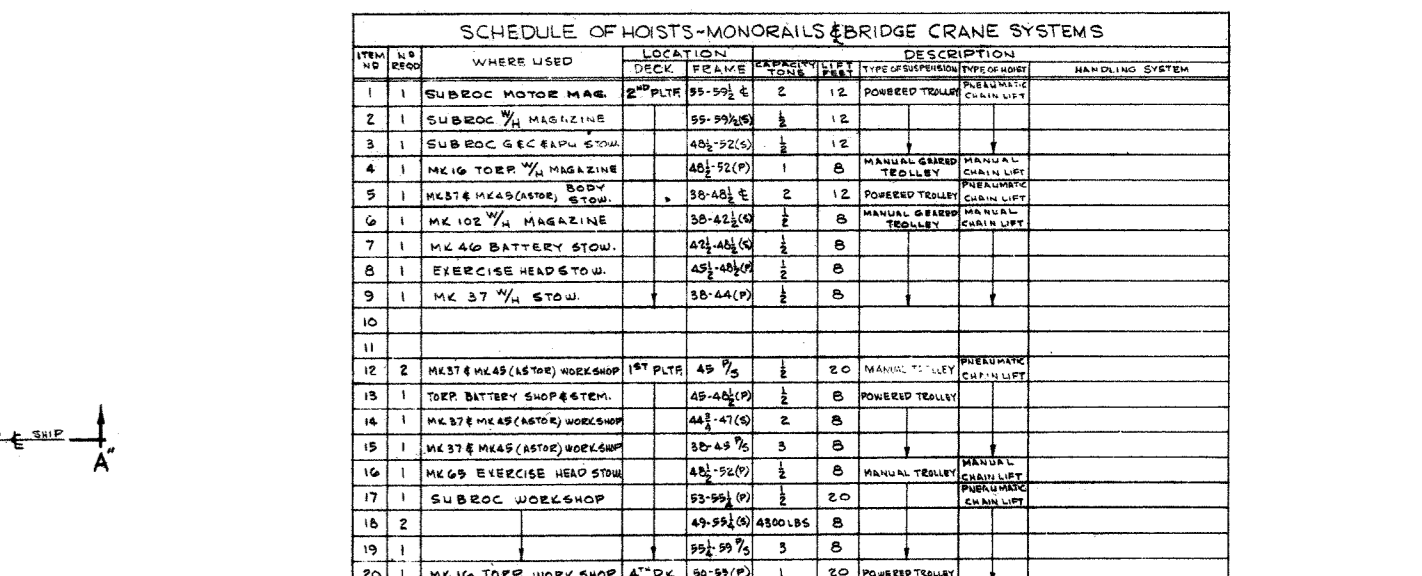 SCHEDULE OF HOISTS~MONORAILS & BRIDGE CRANE SYSTEMS
ITEM NO NO REQD WHERE USED LOCATION DECK FRAME DESCRIPTION CAPACITY TONS LIFT FEET TYPE OF SUSPENSION TYPE OF HOIST HANDLING SYSTEM
1 1 SUBROC MOTOR MAG. 2ND PLTF. 55-59½ ℄ 2 12 POWERED TROLLEY PNEAUMATIC CHAIN LIFT
2 1 SUBROC W/H MAGAZINE 55-59½(S) ½ 12
3 1 SUBROC G&C &APU STOW. 48½-52(S) ½ 12
4 1 MK16 TORP. W/H MAGAZINE 48½-52(P) 1 8 MANUAL GEARED TROLLEY MANUAL CHAIN LIFT
5 1 MK37 & MK45(ASTOR) BODY STOW. 38-48½ ℄ 2 12 POWERED TROLLEY PNEAUMATIC CHAIN LIFT
6 1 MK 102 W/H MAGAZINE 38-42½(S) ½ 8 MANUAL GEARED TROLLEY MANUAL CHAIN LIFT
7 1 MK 46 BATTERY STOW. 42½-48½(S) ½ 8
8 1 EXERCISE HEAD STOW. 45½-48½(P) ½ 8
9 1 MK 37 W/H STOW. 38-44(P) ½ 8
10
11
12 2 MK37 & MK45(ASTOR) WORKSHOP 1ST PLTF. 45 P/S ½ 20 MANUAL TROLLEY PNEAUMATIC CHAIN LIFT
13 1 TORP. BATTERY SHOP & STRM. 45-48½(P) ½ 8 POWERED TROLLEY
14 1 MK37 & MK45(ASTOR) WORKSHOP 44¾-47(S) 2 8
15 1 MK37 & MK45(ASTOR) WORKSHOP 38-45 P/S 3 8
16 1 MK65 EXERCISE HEAD STOW 48½-52(P) ½ 8 MANUAL TROLLEY MANUAL CHAIN LIFT
17 1 SUBROC WORKSHOP 53-55¼(P) ½ 20 PNEAUMATIC CHAIN LIFT
18 2 49-55¼(S) 4300 LBS 8
19 1 55¼-59 P/S 3 8
20 1 MK 16 TORP WORK SHOP 4TH DK 50-53(P) 1 20 POWERED TROLLEY
℄ SHIP
A"